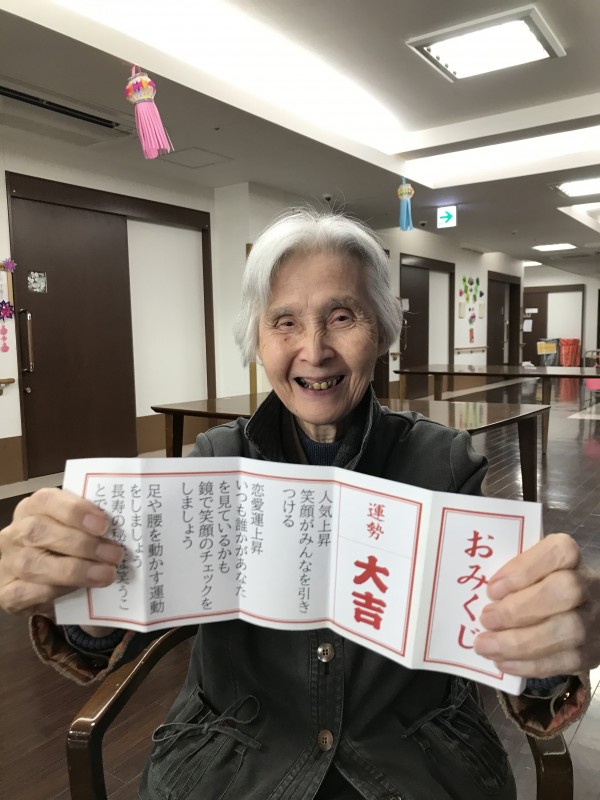 おみくじ
運勢
大吉
人気上昇
笑顔がみんなを引き
つける
恋愛運上昇
いつも誰かがあなた
を見ているかも
鏡で笑顔のチェックを
しましょう
足や腰を動かす運動
をしましょう
長寿の秘は笑うこ
とで